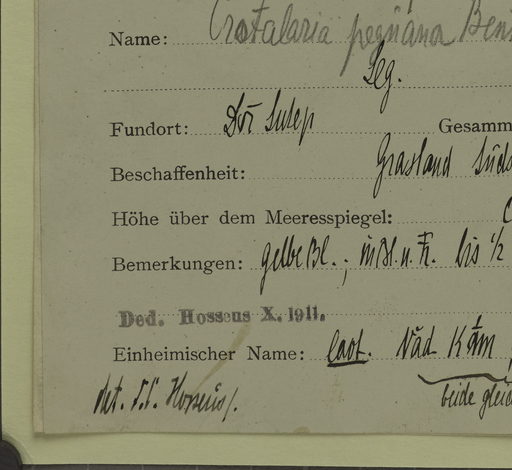 Name: Crotalaria peguana Ben
Leg.
Fundort: Doi Sutep Gesamm
Beschaffenheit: Grasland Süds
Höhe über dem Meeresspiegel:
Bemerkungen: gelbe Bl.; in Bl. u. Fr. bis 1/2
Ded. Hosseus X. 1911.
Einheimischer Name: laot. Nād Kām
det. Hosseus. beide gleic